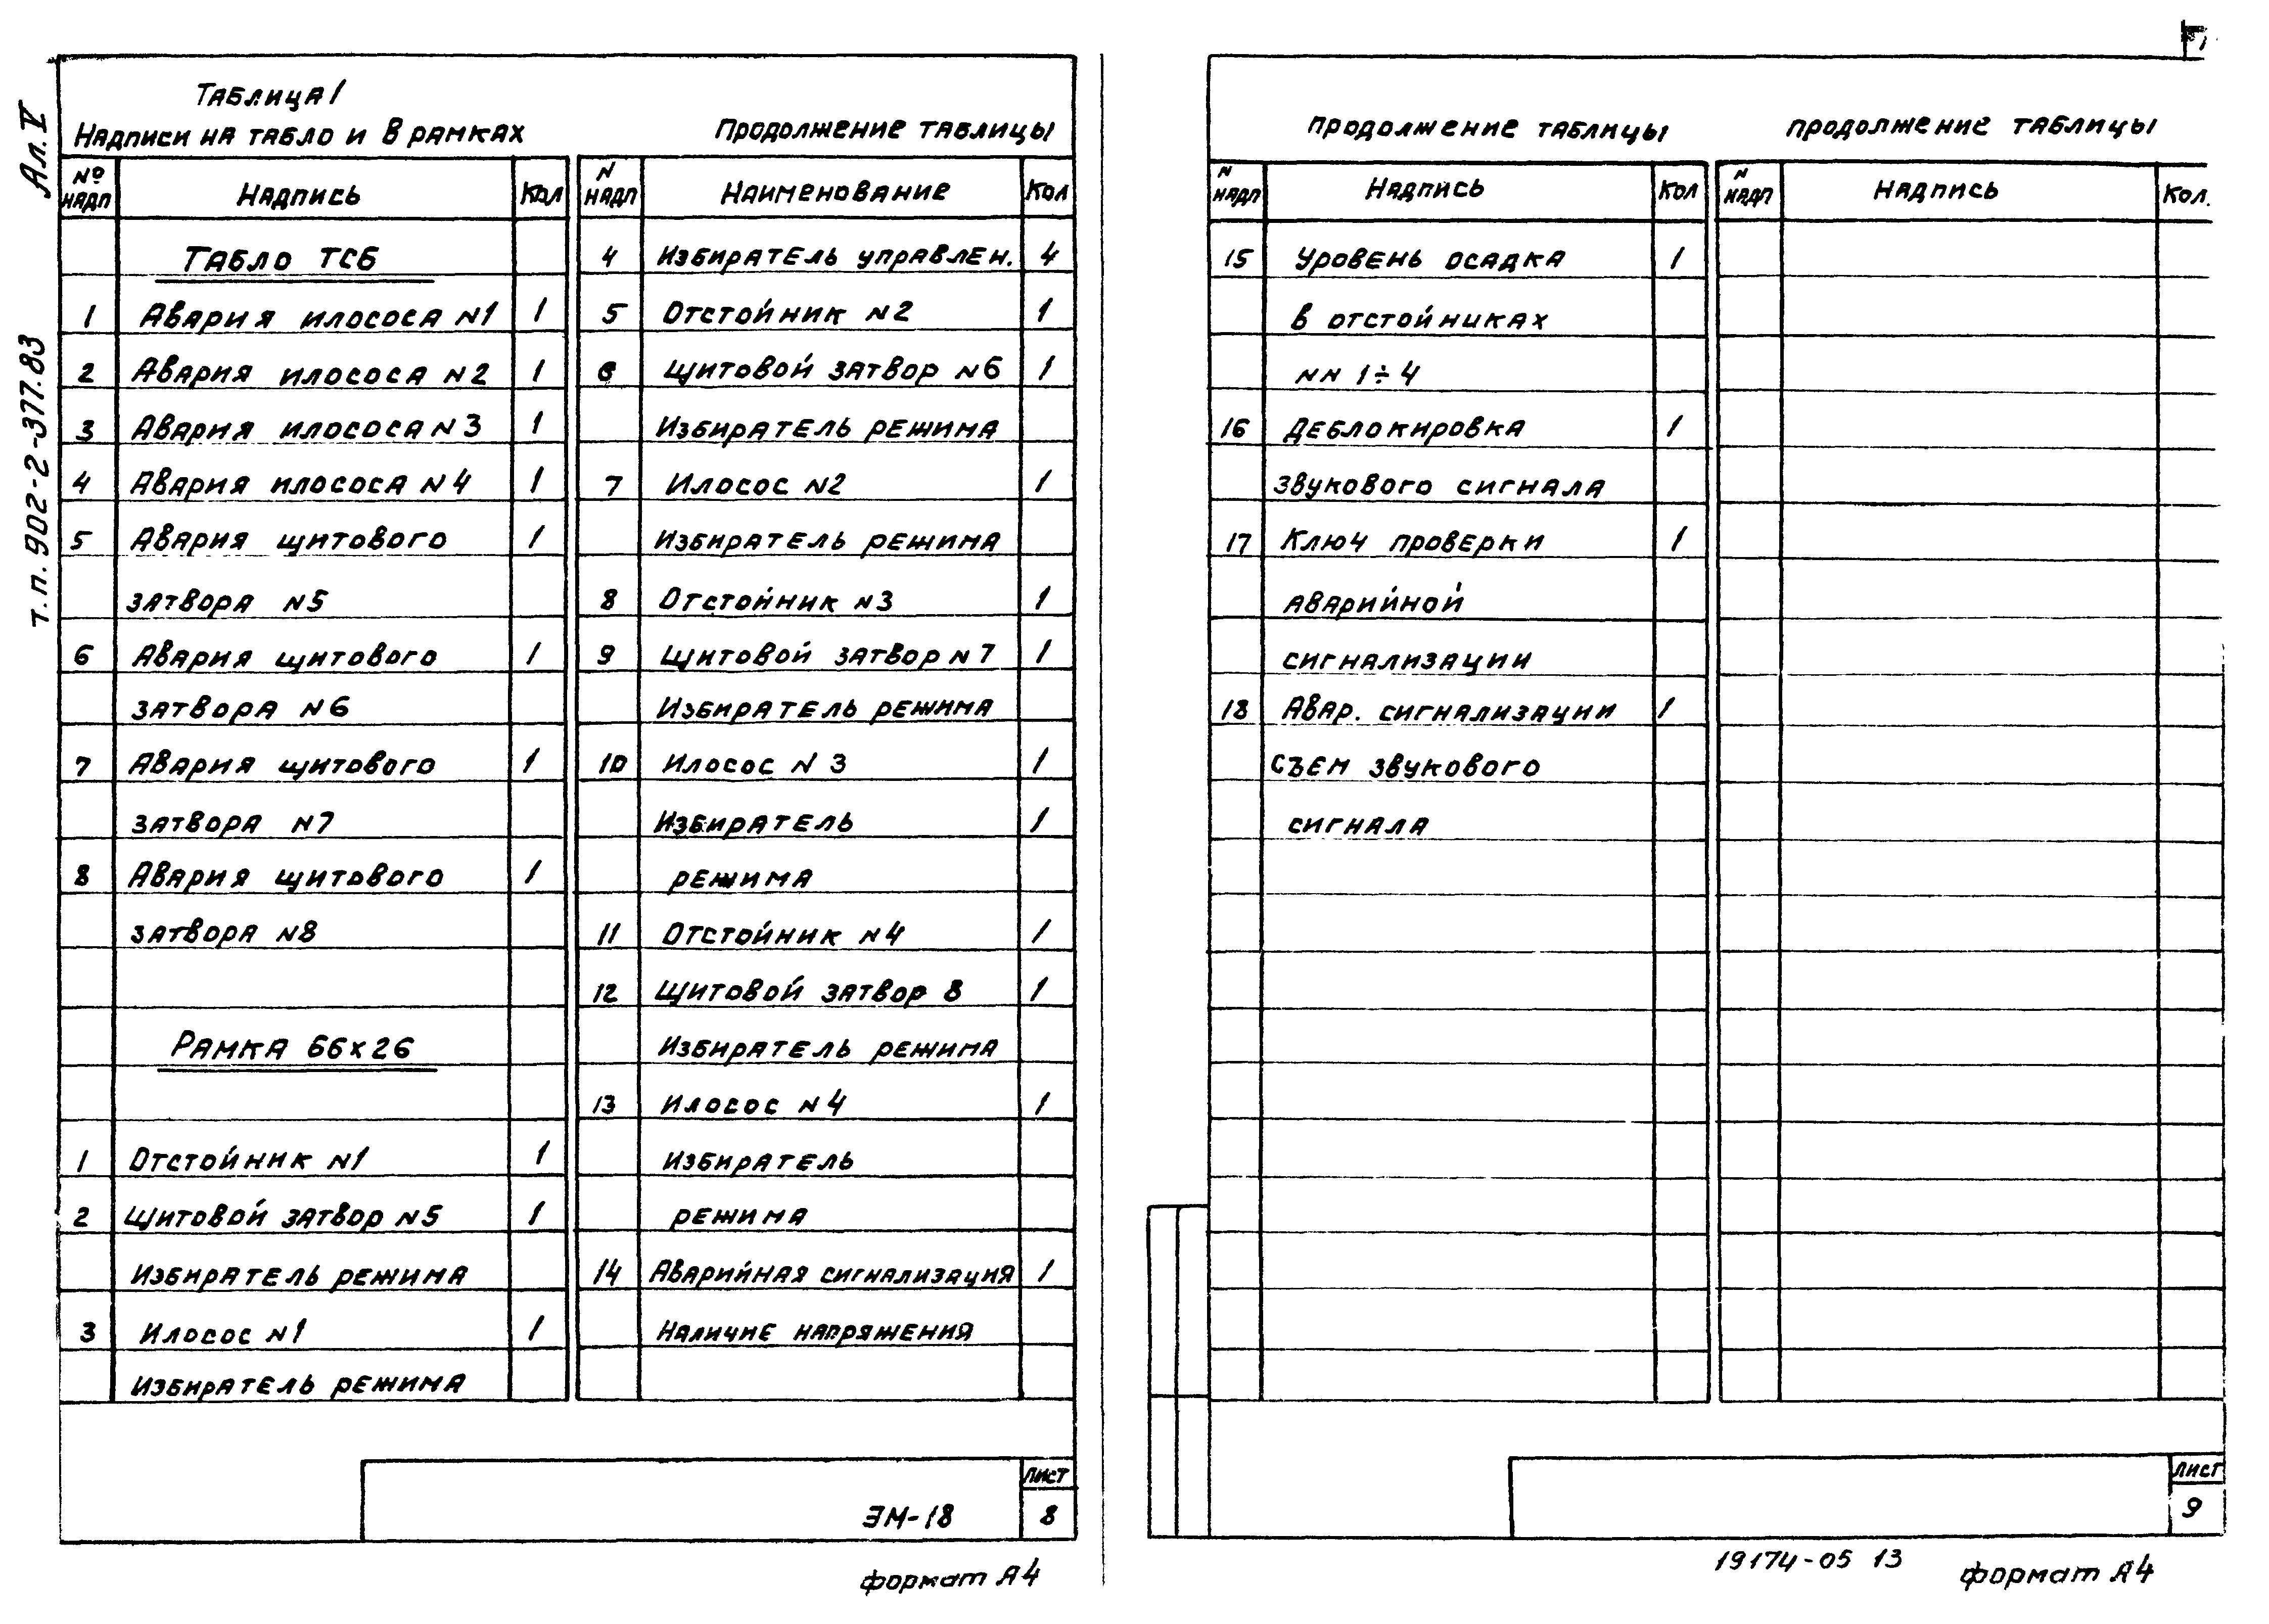 Ал. V
т.п. 902-2-377.83
Таблица 1
Надписи на табло и в рамках
№ надп Надпись Кол
Табло ТСБ
1 Авария илососа N1 1
2 Авария илососа N2 1
3 Авария илососа N3 1
4 Авария илососа N4 1
5 Авария щитового 1
затвора N5
6 Авария щитового 1
затвора N6
7 Авария щитового 1
затвора N7
8 Авария щитового 1
затвора N8
Рамка 66х26
1 Отстойник N1 1
2 Щитовой затвор N5 1
Избиратель режима
3 Илосос N1 1
Избиратель режима
Продолжение таблицы
N надп Наименование Кол
4 Избиратель управлен. 4
5 Отстойник N2 1
6 Щитовой затвор N6 1
Избиратель режима
7 Илосос N2 1
Избиратель режима
8 Отстойник N3 1
9 Щитовой затвор N7 1
Избиратель режима
10 Илосос N3 1
Избиратель 1
режима
11 Отстойник N4 1
12 Щитовой затвор 8 1
Избиратель режима
13 Илосос N4 1
Избиратель
режима
14 Аварийная сигнализация 1
Наличие напряжения
ЭМ-18
Лист
8
формат А4
продолжение таблицы
N надп Надпись Кол
15 Уровень осадка 1
в отстойниках
NN 1÷4
16 Деблокировка 1
звукового сигнала
17 Ключ проверки 1
аварийной
сигнализации
18 Авар. сигнализации 1
съем звукового
сигнала
продолжение таблицы
N надп Надпись Кол.
Лист
9
19174-05 13
формат А4